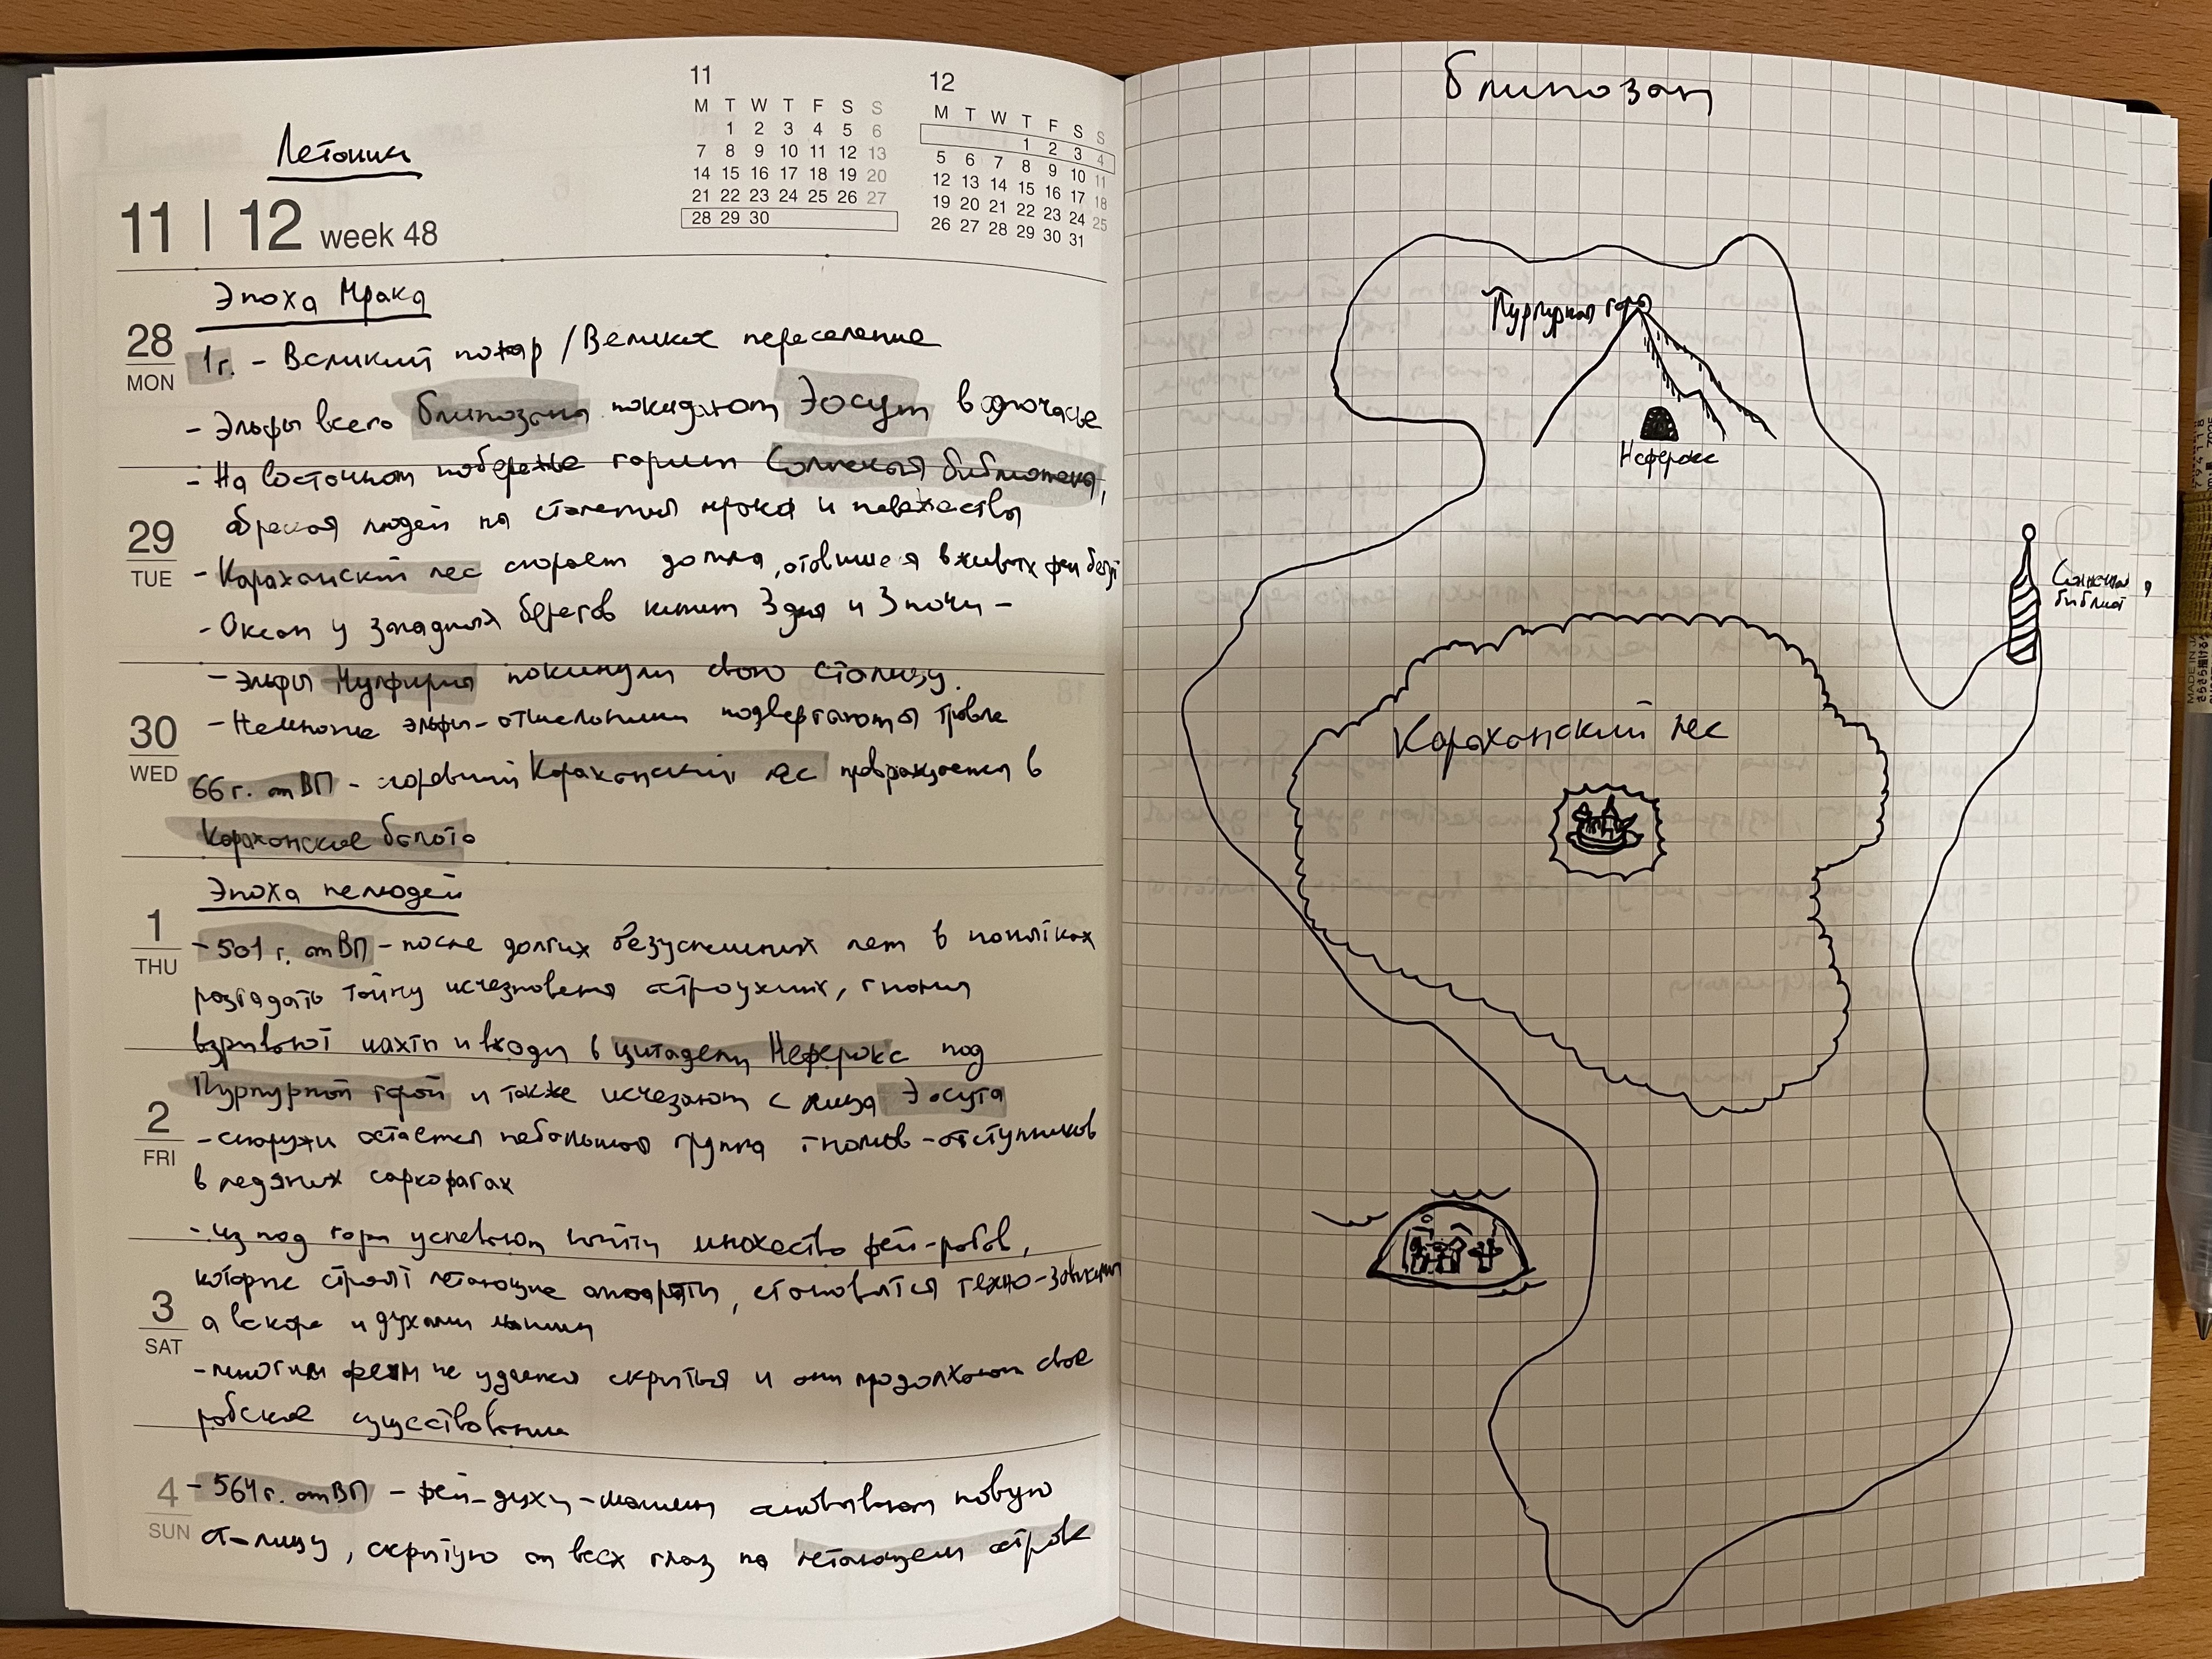 Летопись
11 | 12 week 48
11
M T W T F S S
1 2 3 4 5 6
7 8 9 10 11 12 13
14 15 16 17 18 19 20
21 22 23 24 25 26 27
28 29 30
12
M T W T F S S
1 2 3 4
5 6 7 8 9 10 11
12 13 14 15 16 17 18
19 20 21 22 23 24 25
26 27 28 29 30 31
Эпоха Мрака
28
MON
1г. - Великий пожар / Великих переселение
- Эльфы всего Блипозана покидают Эосут в одночасье
- На восточном побережье горит Солнечная библиотека,
обрекая людей на столетия мрака и невежества
29
TUE
- Караханский лес сгорает дотла, в живых феи
- Океан у западных берегов кипит 3 дня и 3 ночи -
- эльфы покинули свою столицу.
30
WED
- Немногие эльфы-отшельники подвергаются травле
66 г. от ВП - сгоревший Караханский лес превращается в
Караханские болота
Эпоха нелюдей
1
THU
- 501 г. от ВП - после долгих безуспешных лет в попытках
разгадать тайну исчезновения остроухих, гномы
взрывают шахты и входы в цитадель Неферокс под
Пурпурной горой и также исчезают с лица Эосута
2
FRI
- снаружи остается небольшая группа гномов-отступников
в ледяных саркофагах
- из под горы успевают множество фей-рабов,
3
SAT
которые строят летающие аппараты, становятся техно-
а вскоре и духами машин
- многим феям не удается скрыться и они продолжают свое
рабское существование
4
SUN
- 564 г. от ВП - феи-духи-машин новую
столицу, скрытую от всех глаз на летающем острове
Блипозан
Пурпурная гора
Неферокс
Солнечная
библиот
Караханский лес